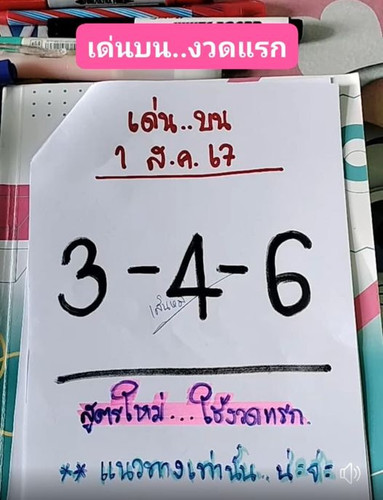 เด่นบน..งวดแรก
เด่น..บน
1 ส.ค. 67
3-4-6
สูตรใหม่...ใช้งวดแรก.
** แนวทางเท่านั้น.. น่ะจ่ะ